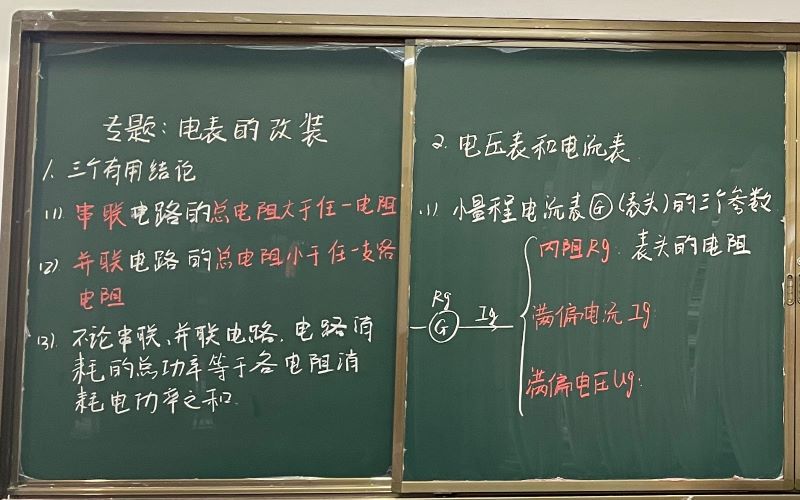 专题：电表的改装
1. 三个有用结论
(1) 串联电路的总电阻大于任一电阻
(2) 并联电路的总电阻小于任一支路
电阻
(3) 不论串联、并联电路，电路消
耗的总功率等于各电阻消
耗电功率之和.
2. 电压表和电流表
(1) 小量程电流表Ⓖ(表头)的三个参数
Rg
G
Ig
内阻Rg: 表头的电阻
满偏电流Ig:
满偏电压Ug: